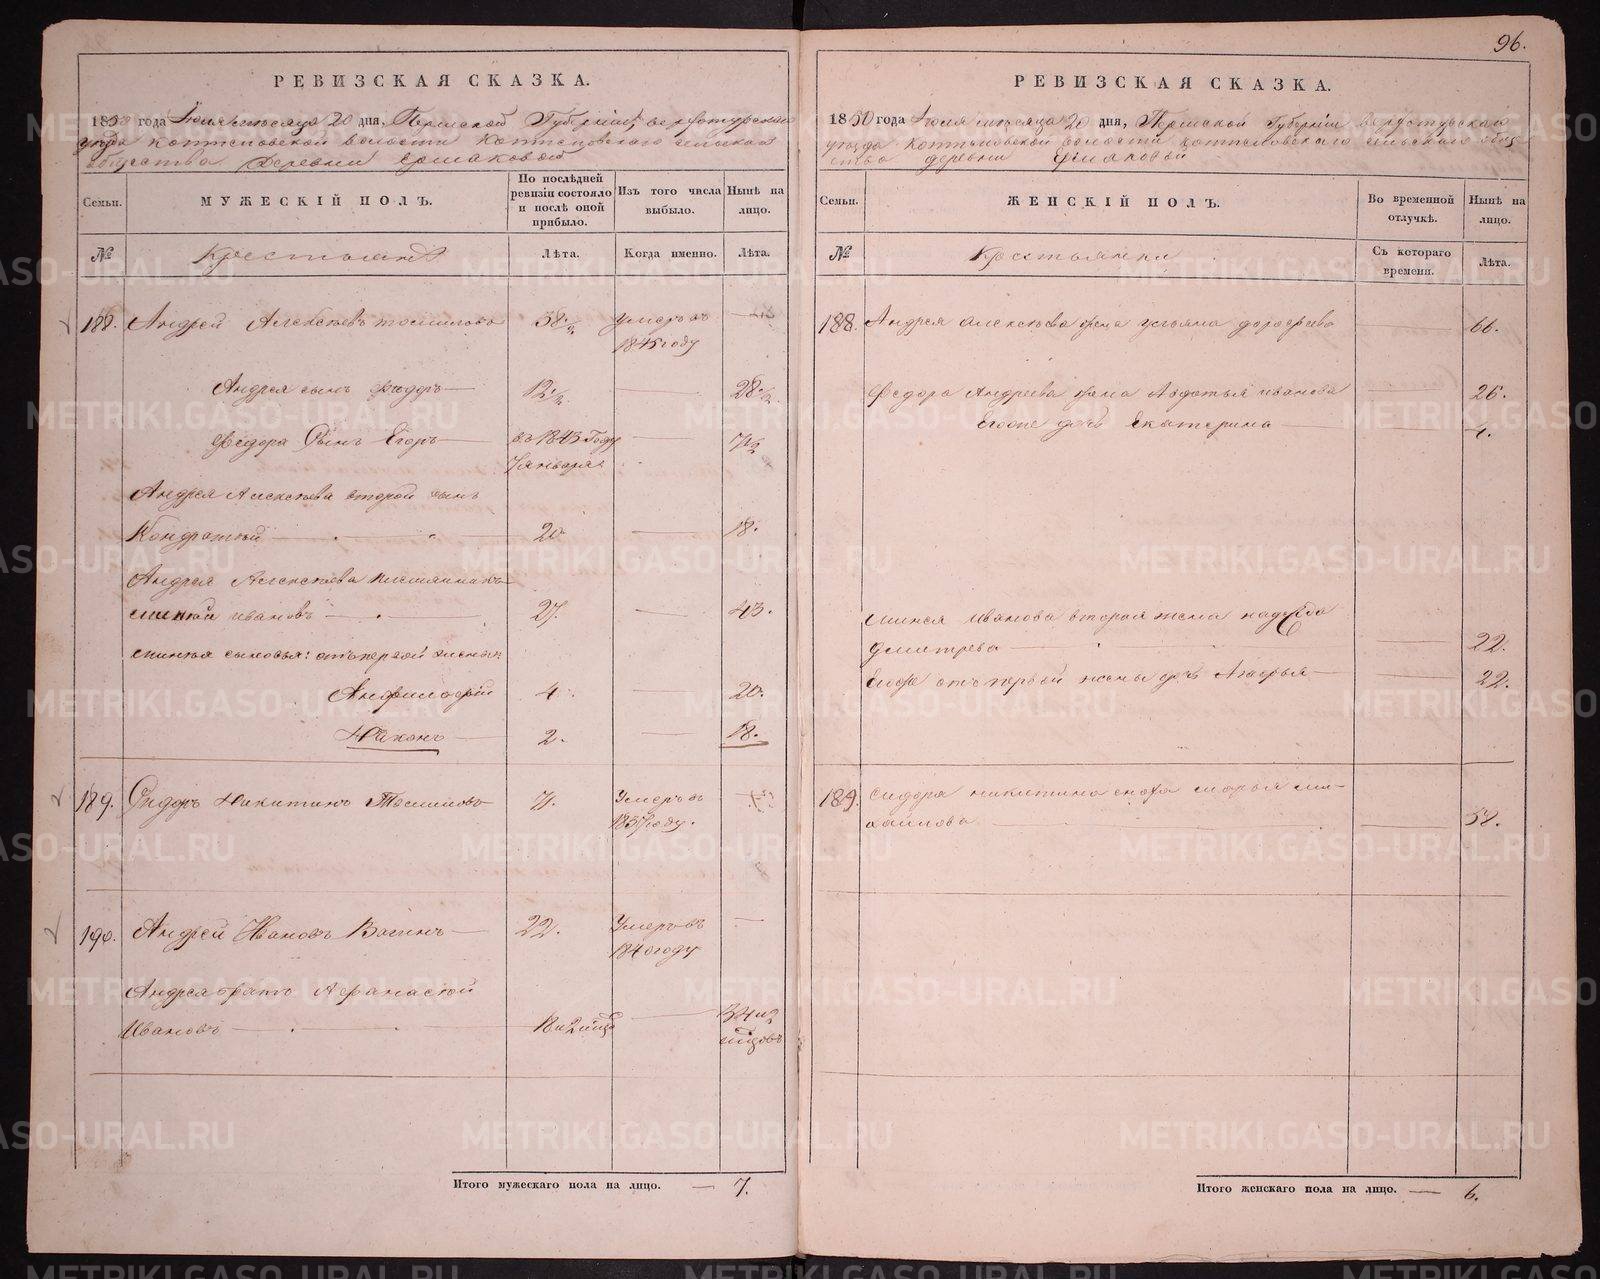 96.
РЕВИЗСКАЯ СКАЗКА.
1850 года Июля месяца 20 дня, Пермской Губернии, верхотурскаго
уезда коптеловской волости Коптеловскаго сельскаго
общества Деревни Ермаковой
Семьи.
МУЖЕСКІЙ ПОЛЪ.
По послѣдней ревизіи состояло и послѣ оной прибыло.
Изъ того числа выбыло.
Нынѣ на лицо.
№
Крестьяне
Лѣта.
Когда именно.
Лѣта.
188. Андрей Алексѣевъ 58 умеръ въ
1845 году
Андрея сынъ Федоръ 12 1/2 28 1/2
Федора Сынъ Егоръ въ 1843 Году 7 1/2
7 января
Андрея Алексѣева второй сынъ
Кондратий 20 18.
Андрея Алексѣева племянникъ
иванов 27. 43.
сыновья: отъ первой жены
Анфилофий 4 20.
Никонъ 2. 18.
189. Сидоръ Никитинъ 71. Умеръ въ
1837 году.
190. Андрей Ивановъ Вагинъ 22. Умеръ въ
1840 году
Андрея братъ Афанасий
Ивановъ 18 и 2 34 и 2
Итого мужескаго пола на лицо. — 7.
РЕВИЗСКАЯ СКАЗКА.
1850 года Июля месяца 20 дня, Пермской Губернии верхотурскаго
уезда Коптеловской волости коптеловскаго сельскаго общ-
ства деревни Ермаковой
Семьи.
ЖЕНСКІЙ ПОЛЪ.
Во временной отлучкѣ.
Нынѣ на лицо.
№
Крестьянки
Съ котораго времени.
Лѣта.
188. Андрея алексѣева жена ульяна дорофеева 66.
Федора Андреева жена Авдотья иванова 26.
Егоже дочь Екатерина 4.
Иванова вторая жена надежда
дмитрева 22.
Егоже отъ первой жены дочь 22.
189. Сидора никитина сноха марья ми-
хайлова 58.
Итого женскаго пола на лицо. — 6.
METRIKI.GASO-URAL.RU